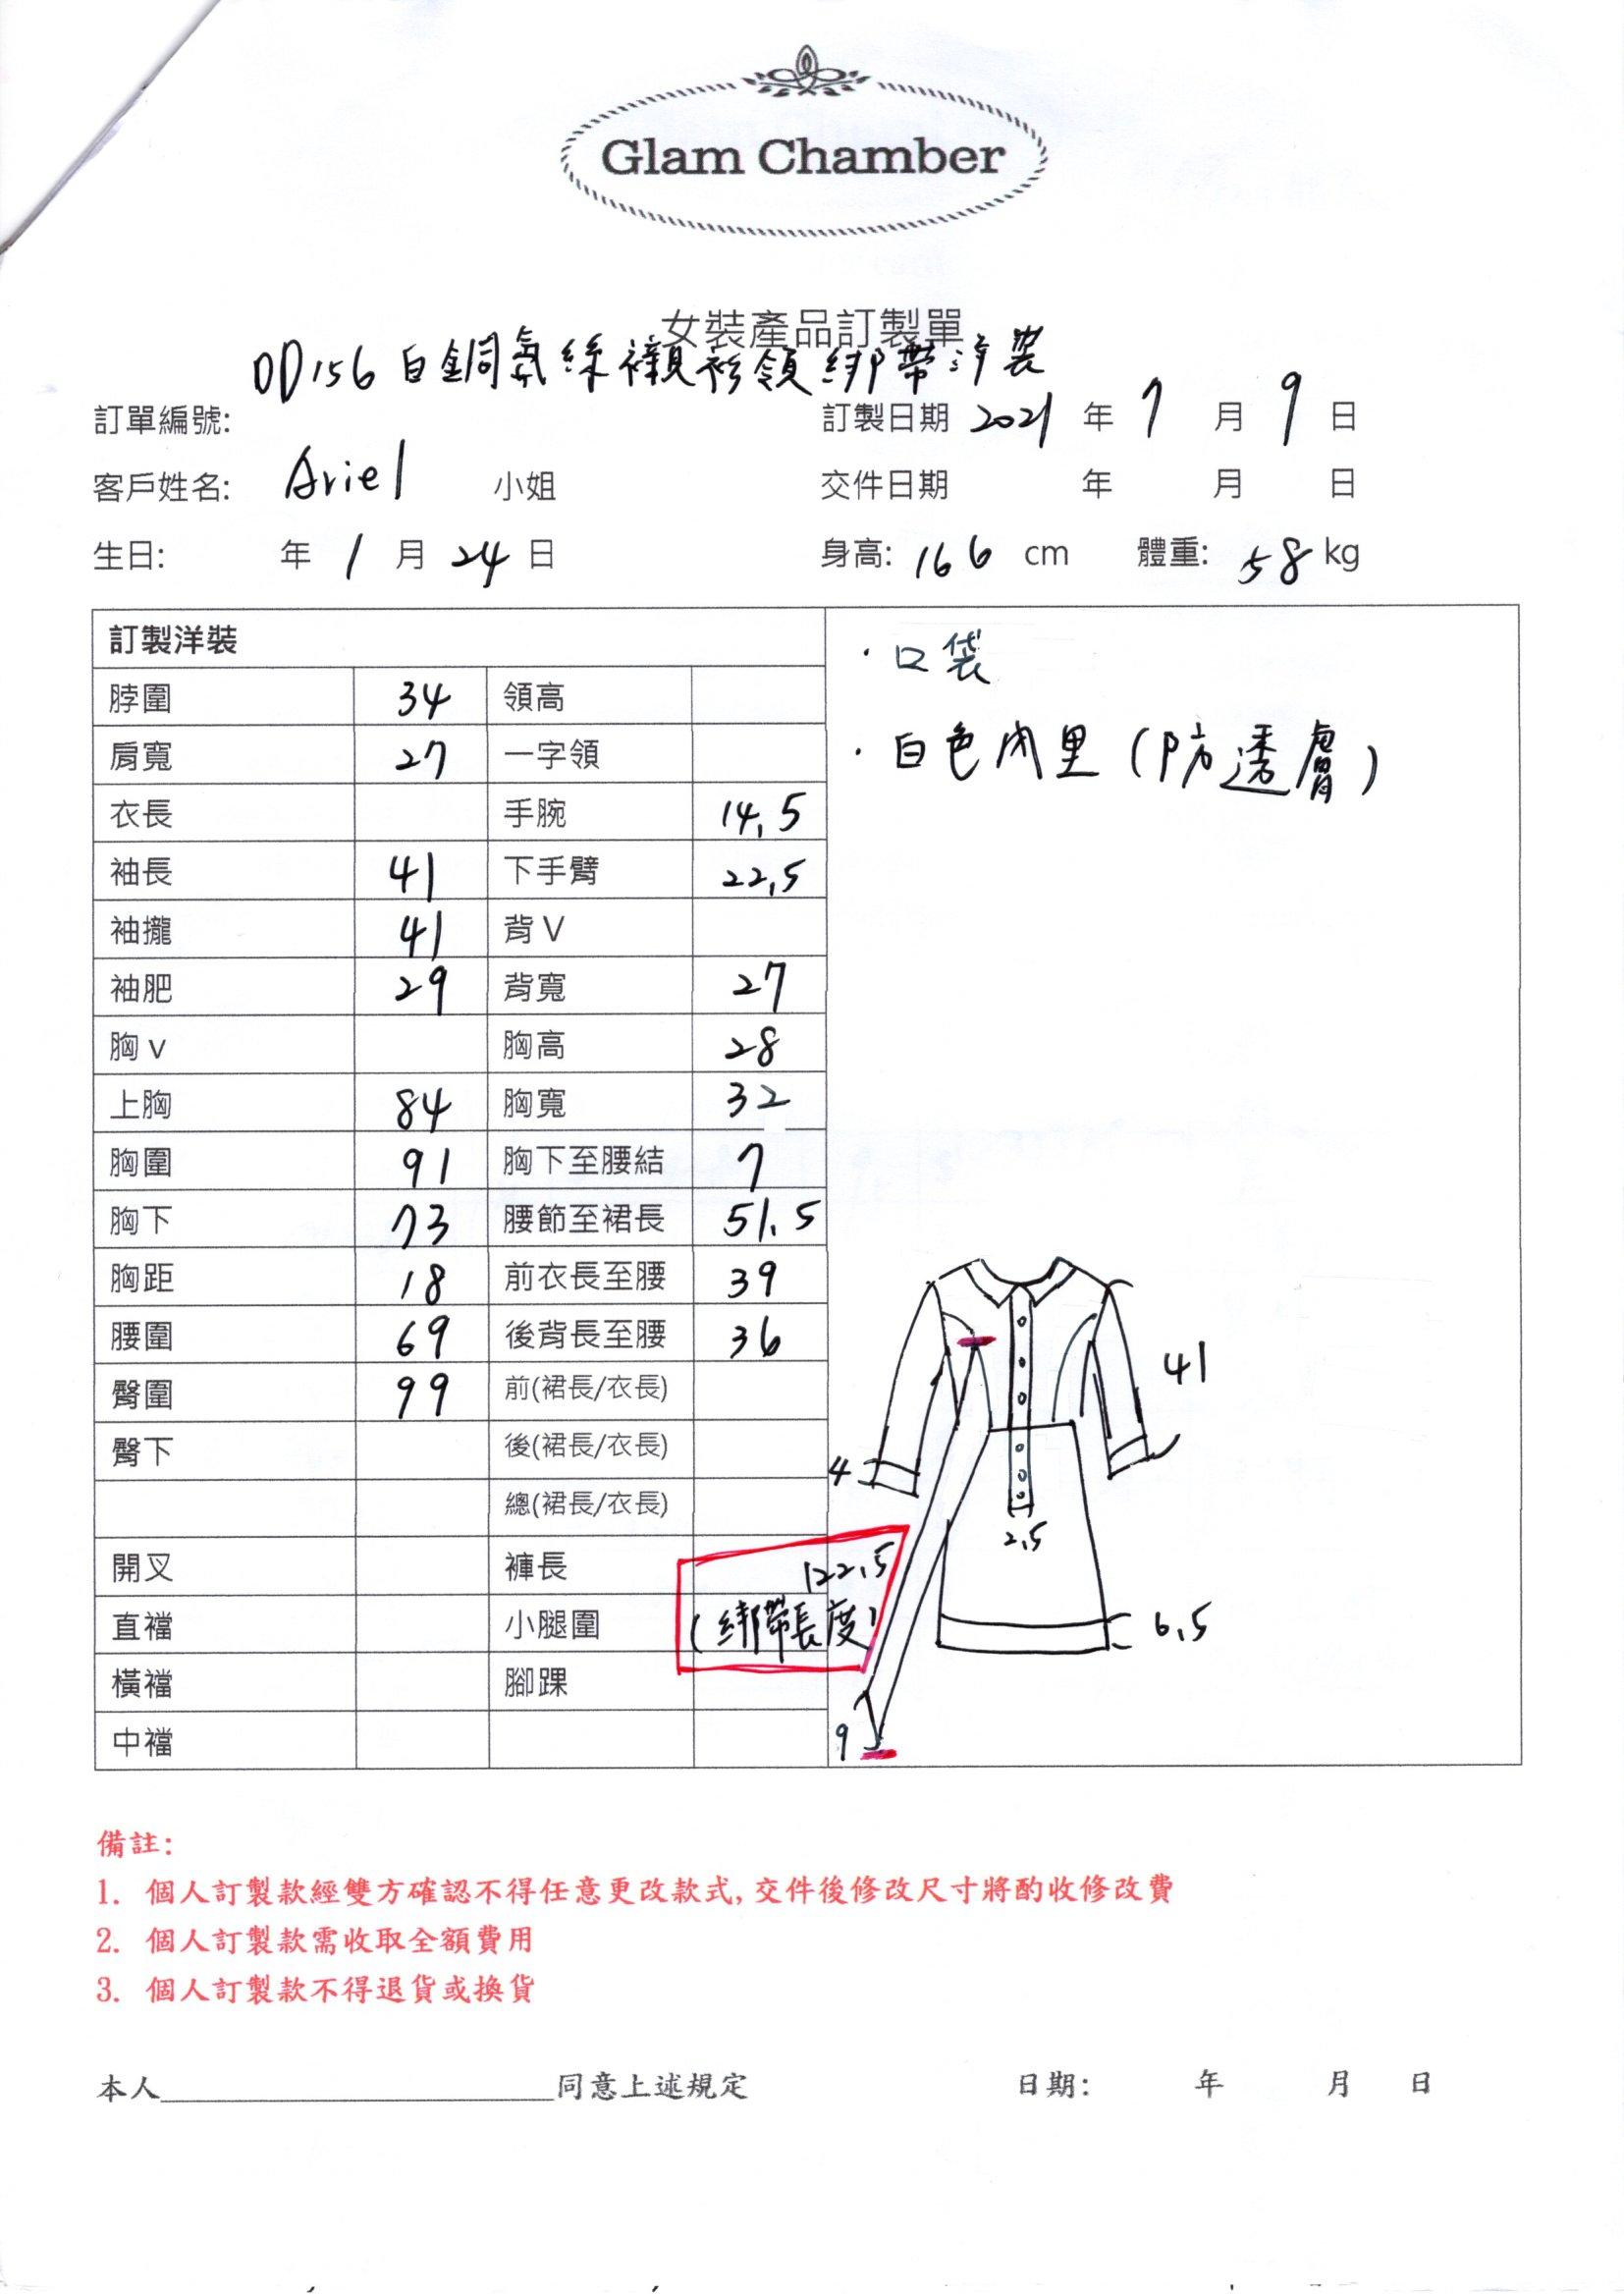 Glam Chamber
女裝產品訂製單
OD156 白銅氨絲襯衫領綁帶洋裝
訂單編號: 訂製日期 2021 年 7 月 9 日
客戶姓名: Ariel 小姐 交件日期 年 月 日
生日: 年 1 月 24 日 身高: 166 cm 體重: 58 kg
訂製洋裝
・口袋
脖圍 34 領高
肩寬 27 一字領
・白色內里(防透膚)
衣長 手腕 14.5
袖長 41 下手臂 22.5
袖攏 41 背 V
袖肥 29 背寬 27
胸 v 胸高 28
上胸 84 胸寬 32
胸圍 91 胸下至腰結 7
胸下 73 腰節至裙長 51.5
胸距 18 前衣長至腰 39
腰圍 69 後背長至腰 36
臀圍 99 前(裙長/衣長)
臀下 後(裙長/衣長)
總(裙長/衣長)
開叉 褲長 122.5
直襠 小腿圍 (綁帶長度)
橫襠 腳踝
中襠
41
4
2.5
6.5
9
備註:
1. 個人訂製款經雙方確認不得任意更改款式,交件後修改尺寸將酌收修改費
2. 個人訂製款需收取全額費用
3. 個人訂製款不得退貨或換貨
本人____________________同意上述規定 日期: 年 月 日